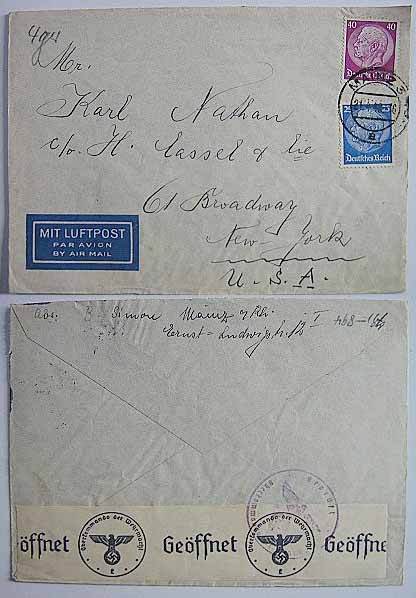 494
Mr.
Karl Nathan
c/o H. Cassel & Cie
61 Broadway
New-York
U. S. A.
MIT LUFTPOST
PAR AVION
BY AIR MAIL
40 40
Deutsches Reich
25 25
Deutsches Reich
Abs: B. Simon Mainz a/Rh.
Ernst-Ludwigstr. 12 I
Geöffnet
Oberkommando der Wehrmacht
Geöffnet
Oberkommando der Wehrmacht
Geöffne